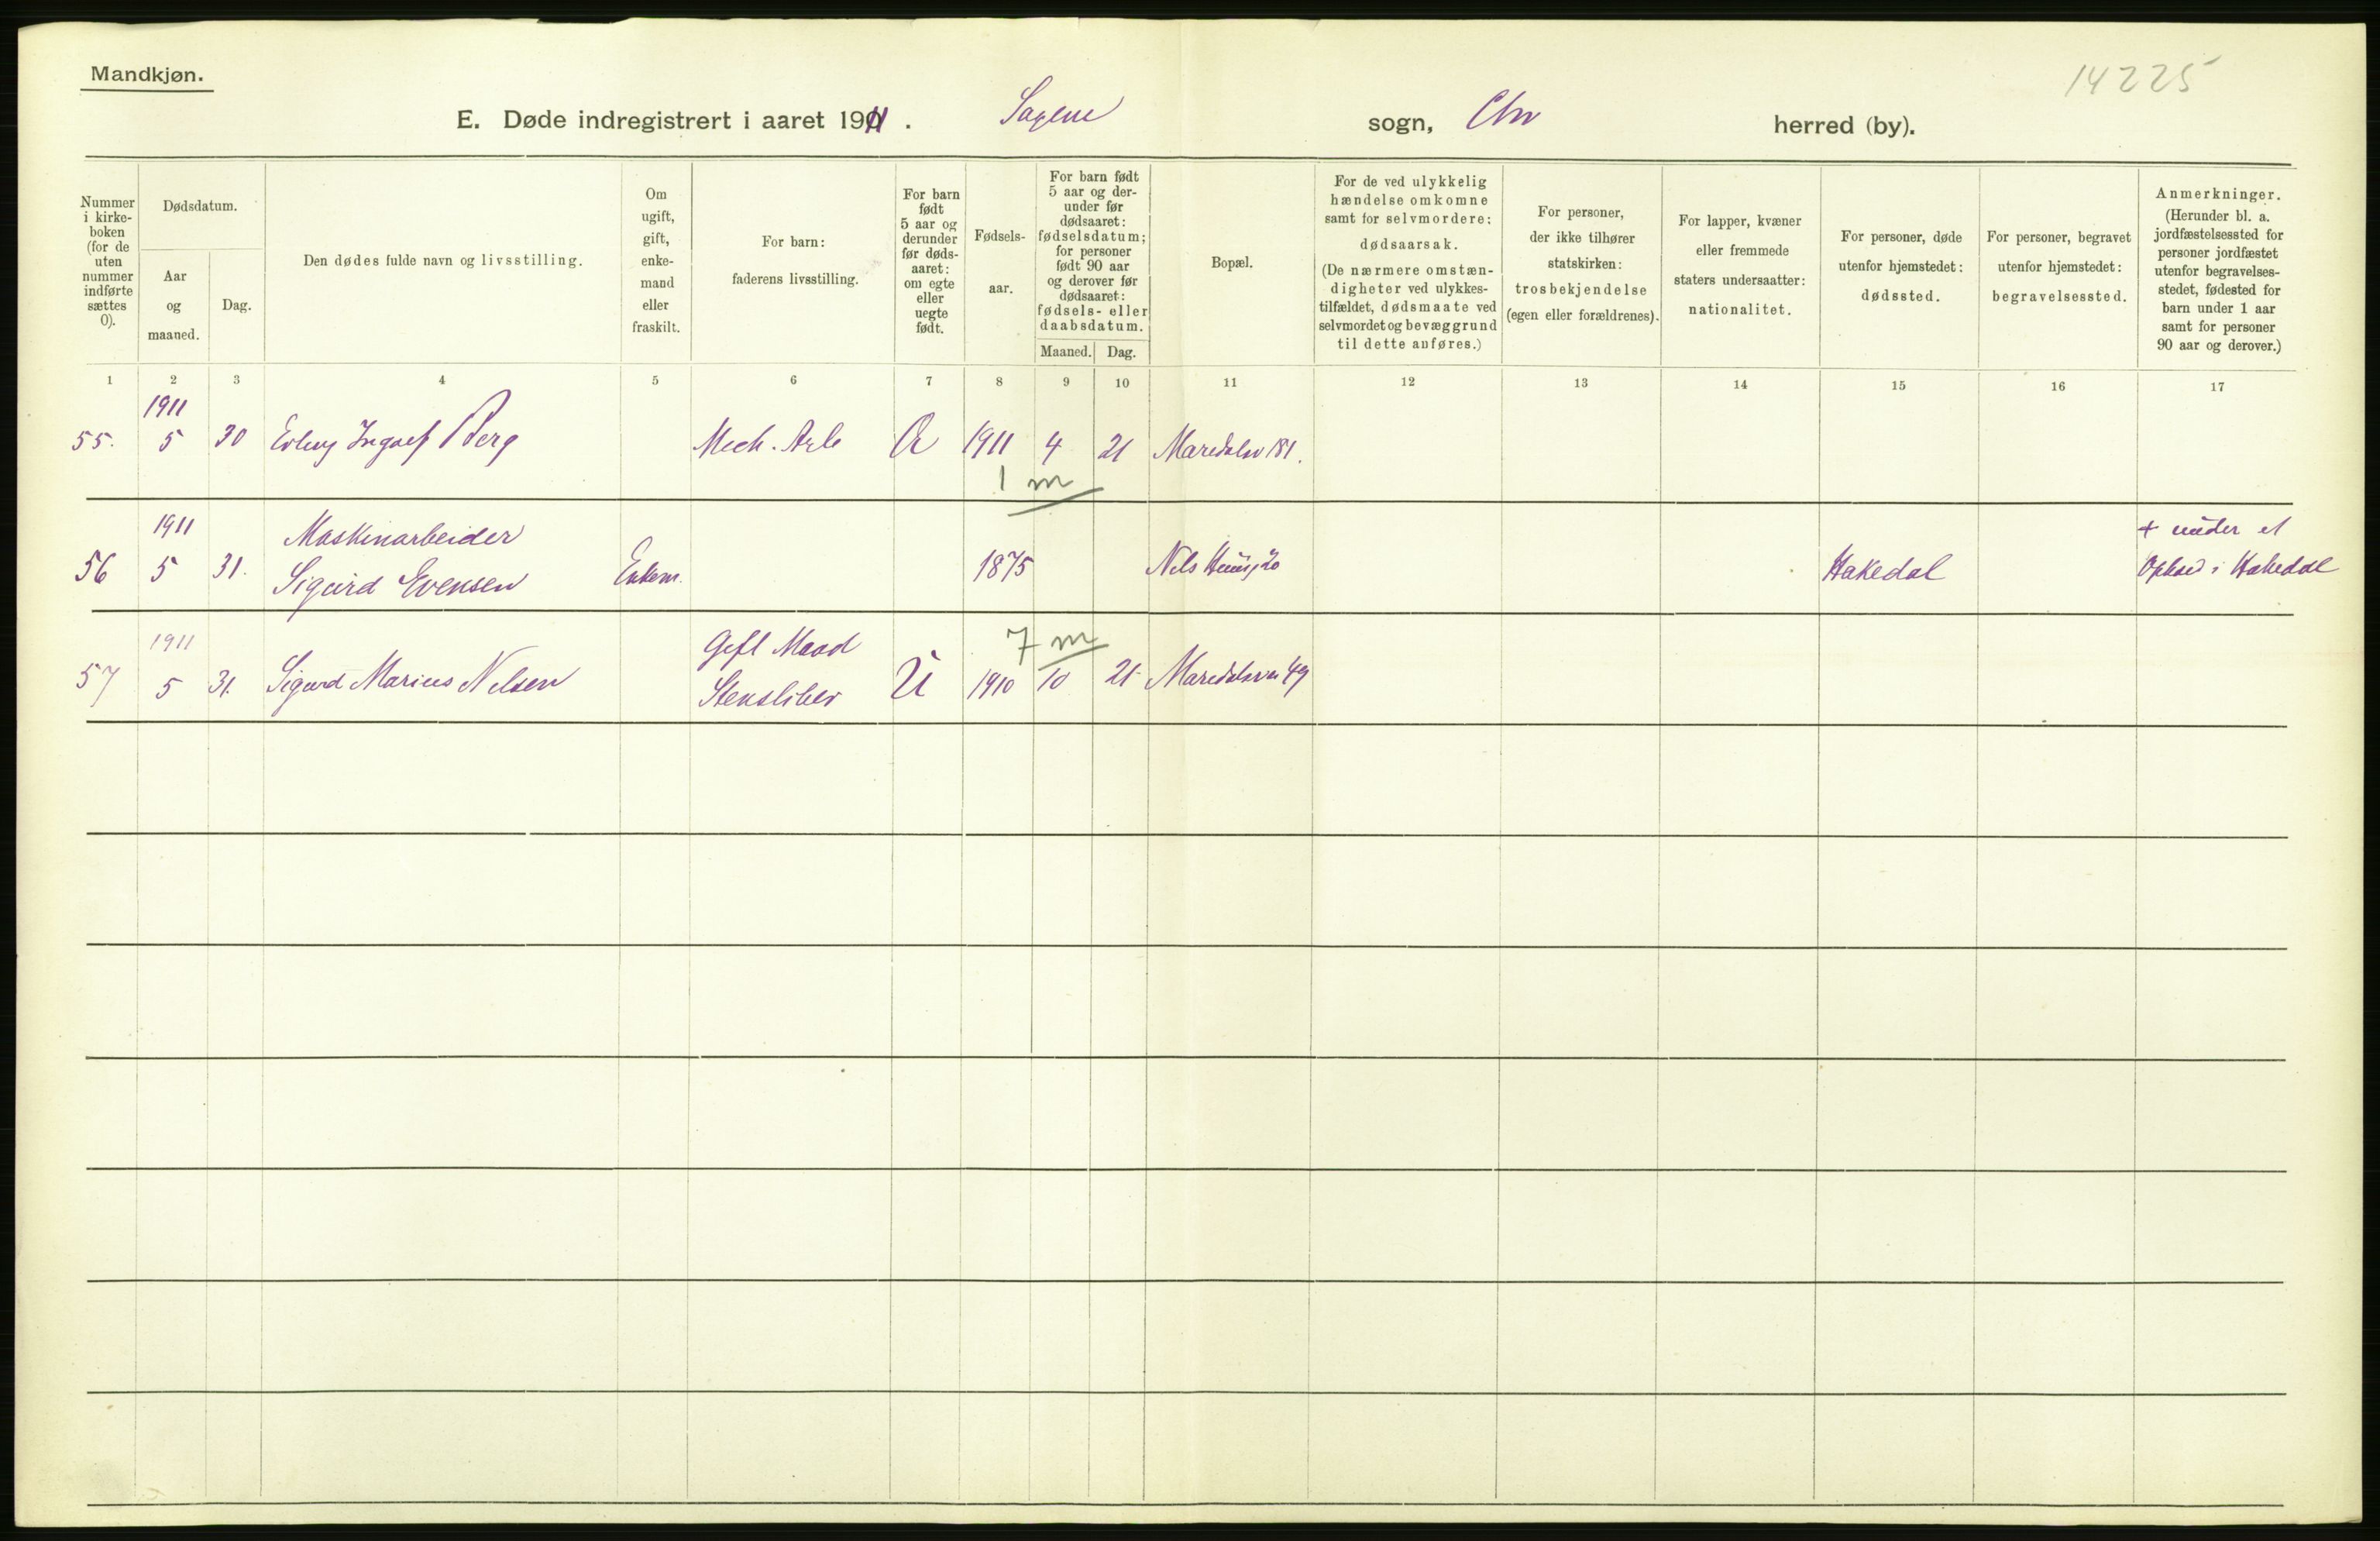 Mandkjøn.
14225
E. Døde indregistrert i aaret 1911. Sagene sogn, Chr herred (by).
Nummer i kirke-boken (for de uten nummer indførte sættes 0).
Dødsdatum.
Aar og maaned.
Dag.
Den dødes fulde navn og livsstilling.
Om ugift, gift, enke-mand eller fraskilt.
For barn: faderens livsstilling.
For barn født 5 aar og derunder før døds-aaret: om egte eller uegte født.
Fødsels-aar.
For barn født 5 aar og der-under før dødsaaret: fødselsdatum; for personer født 90 aar og derover før dødsaaret: fødsels- eller daabsdatum.
Maaned.
Dag.
Bopæl.
For de ved ulykkelig hændelse omkomne samt for selvmordere: dødsaarsak. (De nærmere omstæn-digheter ved ulykkes-tilfældet, dødsmaate ved selvmordet og bevæggrund til dette anføres.)
For personer, der ikke tilhører statskirken: trosbekjendelse (egen eller forældrenes).
For lapper, kvæner eller fremmede staters undersaatter: nationalitet.
For personer, døde utenfor hjemstedet: dødssted.
For personer, begravet utenfor hjemstedet: begravelsessted.
Anmerkninger. (Herunder bl. a. jordfæstelsessted for personer jordfæstet utenfor begravelses-stedet, fødested for barn under 1 aar samt for personer 90 aar og derover.)
1 2 3 4 5 6 7 8 9 10 11 12 13 14 15 16 17
1911
55. 5 30 Ingolf Berg Mech. Arb 1911 4 21 Maridalsv 181.
1 m
1911 Maskinarbeider + under et
56 5 31. Sigurd Evensen Enkem. 1875 Nils Huusg 20 Hakedal Ophold i Hakedal
1911 Gift Mand 7 m
57 5 31. Sigurd Marius Nilsen Stensliber U 1910 10 21 Maridalsvei 49